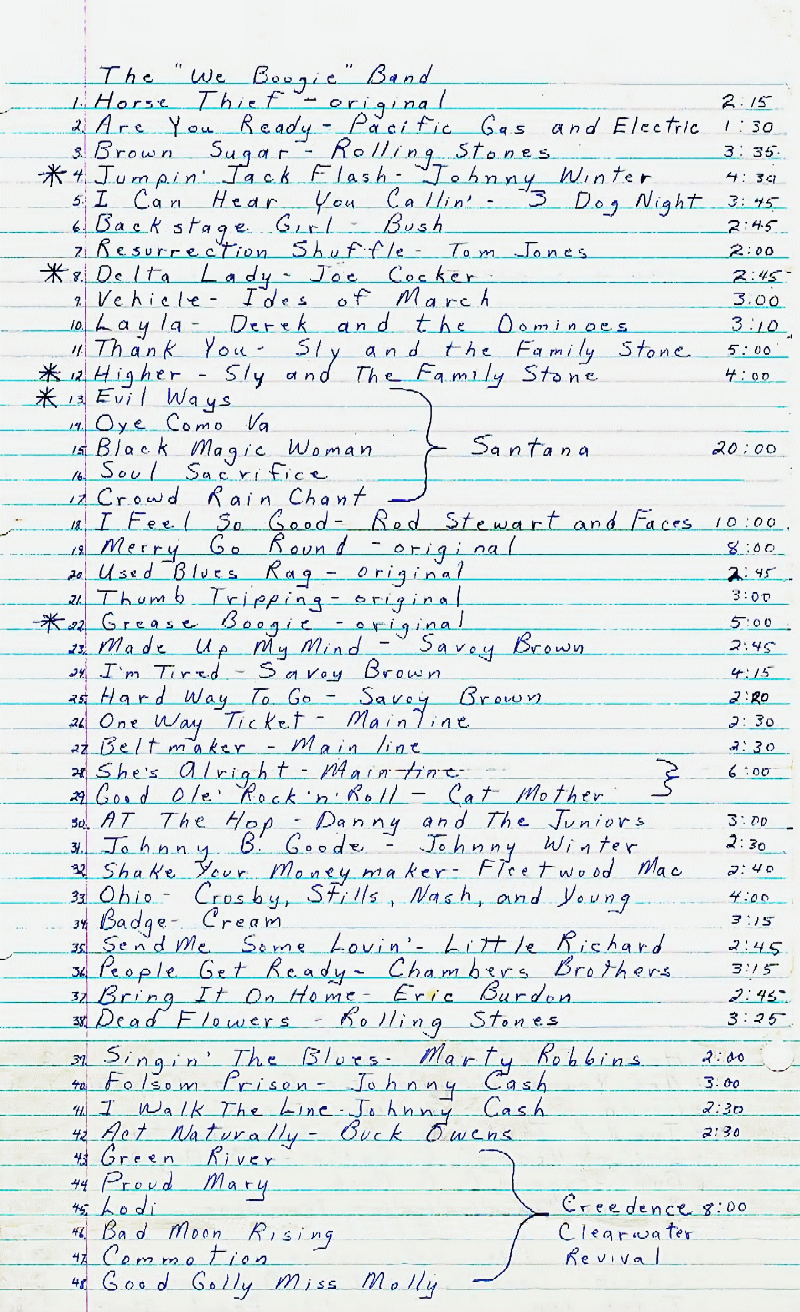 The "We Boogie" Band
1. Horse Thief - original 2:15
2. Are You Ready - Pacific Gas and Electric 1:30
3. Brown Sugar - Rolling Stones 3:35
* 4. Jumpin' Jack Flash - Johnny Winter 4:30
5. I Can Hear You Callin' - 3 Dog Night 3:45
6. Backstage Girl - Bush 2:45
7. Resurrection Shuffle - Tom Jones 2:00
* 8. Delta Lady - Joe Cocker 2:45
9. Vehicle - Ides of March 3:00
10. Layla - Derek and the Dominoes 3:10
11. Thank You - Sly and the Family Stone 5:00
* 12. Higher - Sly and The Family Stone 4:00
* 13. Evil Ways
14. Oye Como Va
15. Black Magic Woman Santana 20:00
16. Soul Sacrifice
17. Crowd Rain Chant
18. I Feel So Good - Rod Stewart and Faces 10:00
19. Merry Go Round - original 8:00
20. Used Blues Rag - original 2:45
21. Thumb Tripping - original 3:00
* 22. Grease Boogie - original 5:00
23. Made Up My Mind - Savoy Brown 2:45
24. I'm Tired - Savoy Brown 4:15
25. Hard Way To Go - Savoy Brown 2:20
26. One Way Ticket - Mainline 2:30
27. Beltmaker - Mainline 2:30
28. She's Alright - Mainline 6:00
29. Good Ole' Rock 'n' Roll - Cat Mother
30. AT The Hop - Danny and The Juniors 3:00
31. Johnny B. Goode - Johnny Winter 2:30
32. Shake Your Moneymaker - Fleetwood Mac 2:40
33. Ohio - Crosby, Stills, Nash, and Young 4:00
34. Badge - Cream 3:15
35. Send Me Some Lovin' - Little Richard 2:45
36. People Get Ready - Chambers Brothers 3:15
37. Bring It On Home - Eric Burdon 2:45
38. Dead Flowers - Rolling Stones 3:25
39. Singin' The Blues - Marty Robbins 2:00
40. Folsom Prison - Johnny Cash 3:00
41. I Walk The Line - Johnny Cash 2:30
42. Act Naturally - Buck Owens 2:30
43. Green River
44. Proud Mary
45. Lodi Creedence 8:00
46. Bad Moon Rising Clearwater
47. Commotion Revival
48. Good Golly Miss Molly